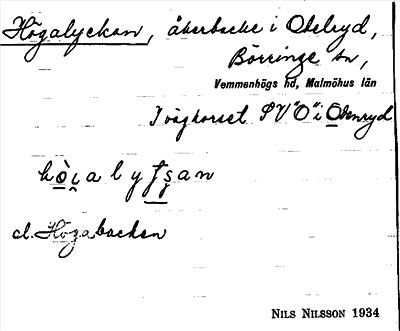 Högalyckan, åkerbacke i Odelryd,
Börringe sn,
Vemmenhögs hd, Malmöhus län
I vägkorset SV "O" i Odenryd
hò̱i̯alyt̠ʂan
el. Högabacken
NILS NILSSON 1934